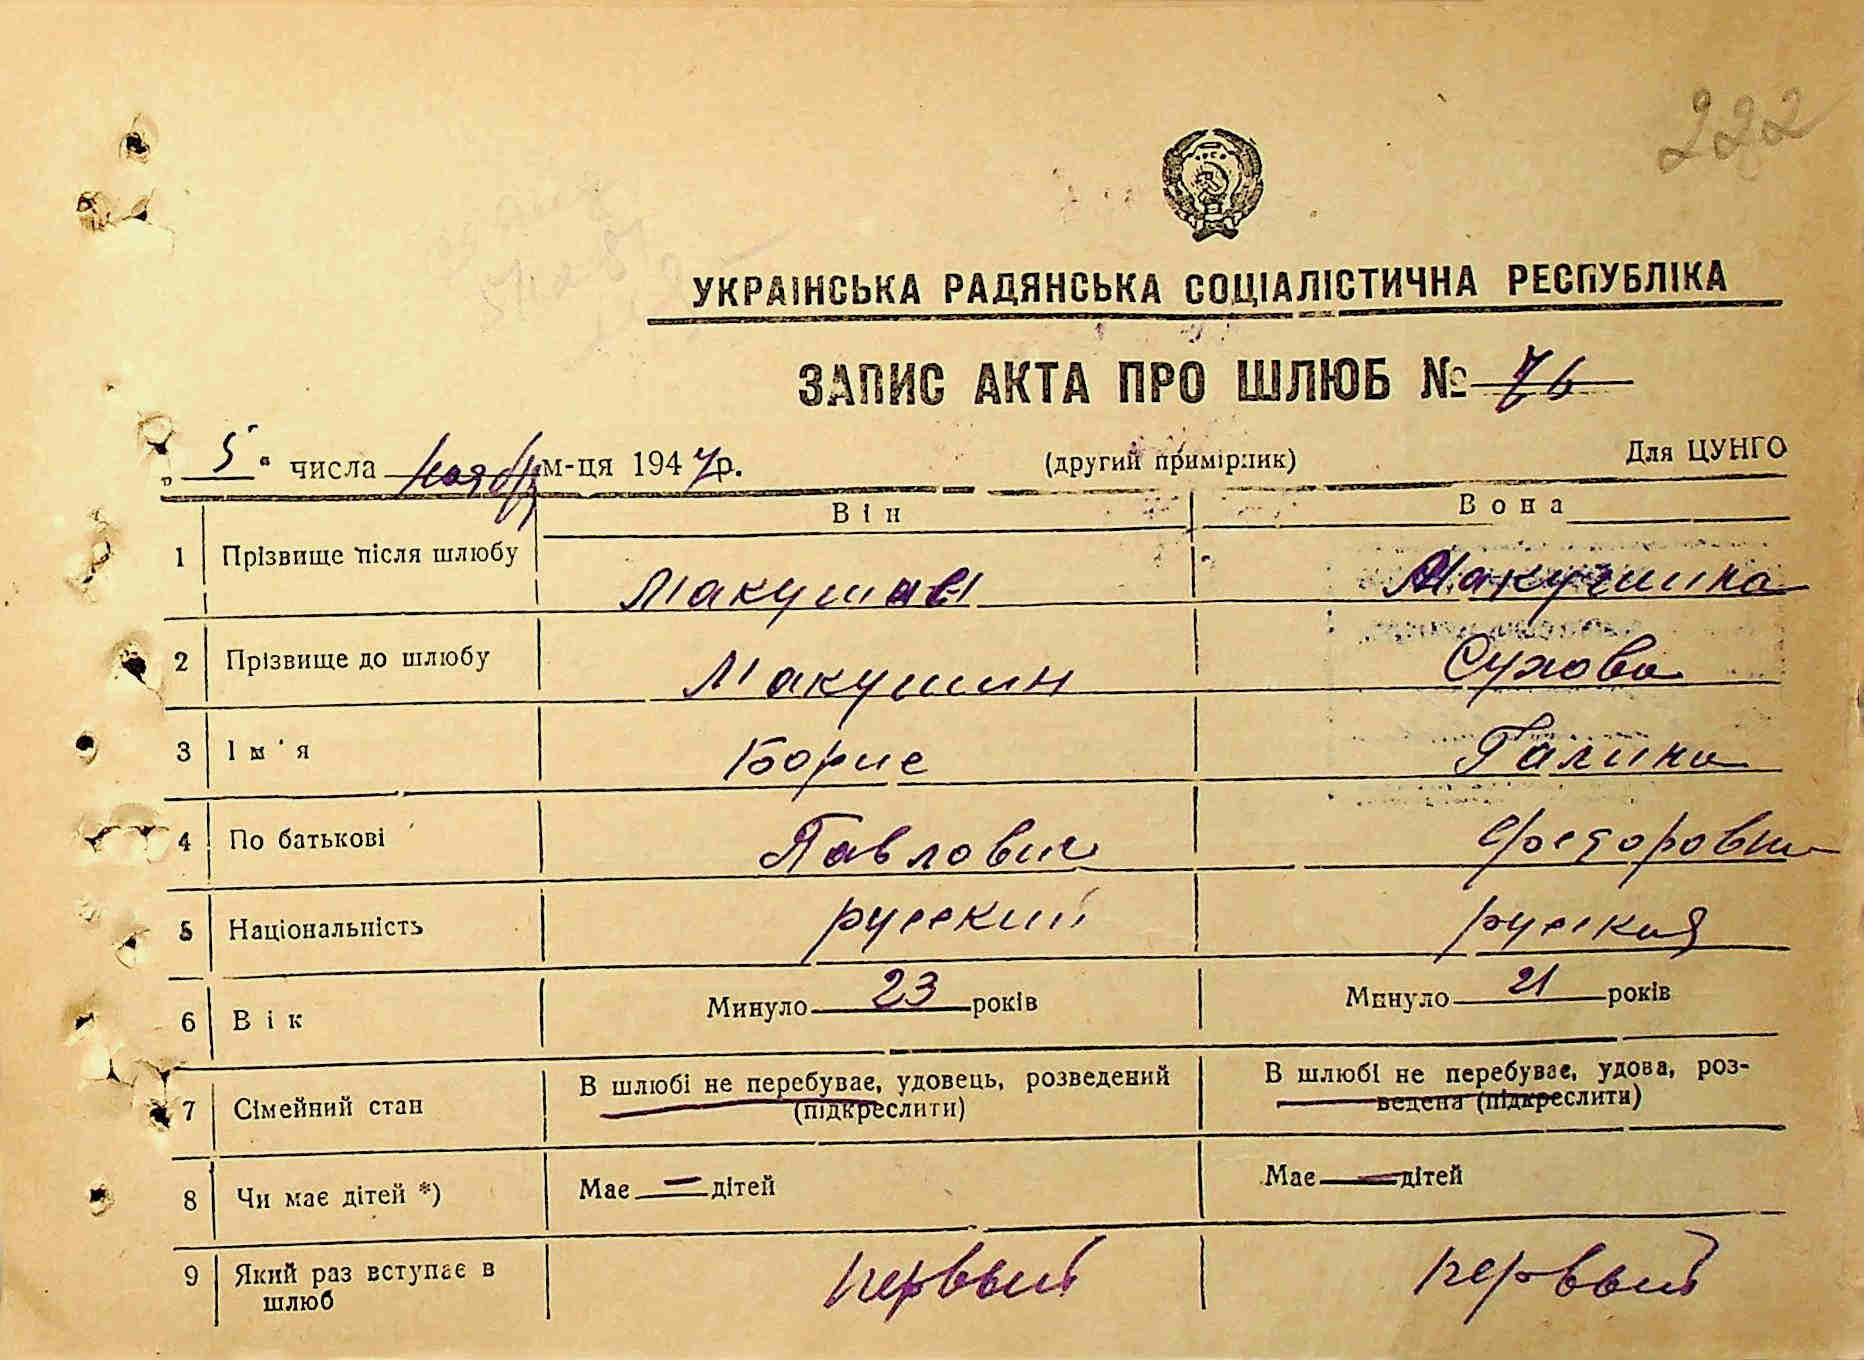 222
УКРАІНСЬКА РАДЯНСЬКА СОЦІАЛІСТИЧНА РЕСПУБЛІКА
ЗАПИС АКТА ПРО ШЛЮБ № 76
„ 5 “ числа ноябр м-ця 1947 р. (другий примірник) Для ЦУНГО
Він Вона
1 Прізвище після шлюбу Макушин Макушина
2 Прізвище до шлюбу Макушин Сухова
3 Ім'я Борис Галина
4 По батькові Павлович Федоровна
5 Національність русский русская
6 Вік Минуло 23 років Минуло 21 років
7 Сімейний стан В шлюбі не перебуває, удовець, розведений В шлюбі не перебуває, удова, роз-
(підкреслити) ведена (підкреслити)
8 Чи має дітей *) Має — дітей Має — дітей
9 Який раз вступає в первый первый
шлюб